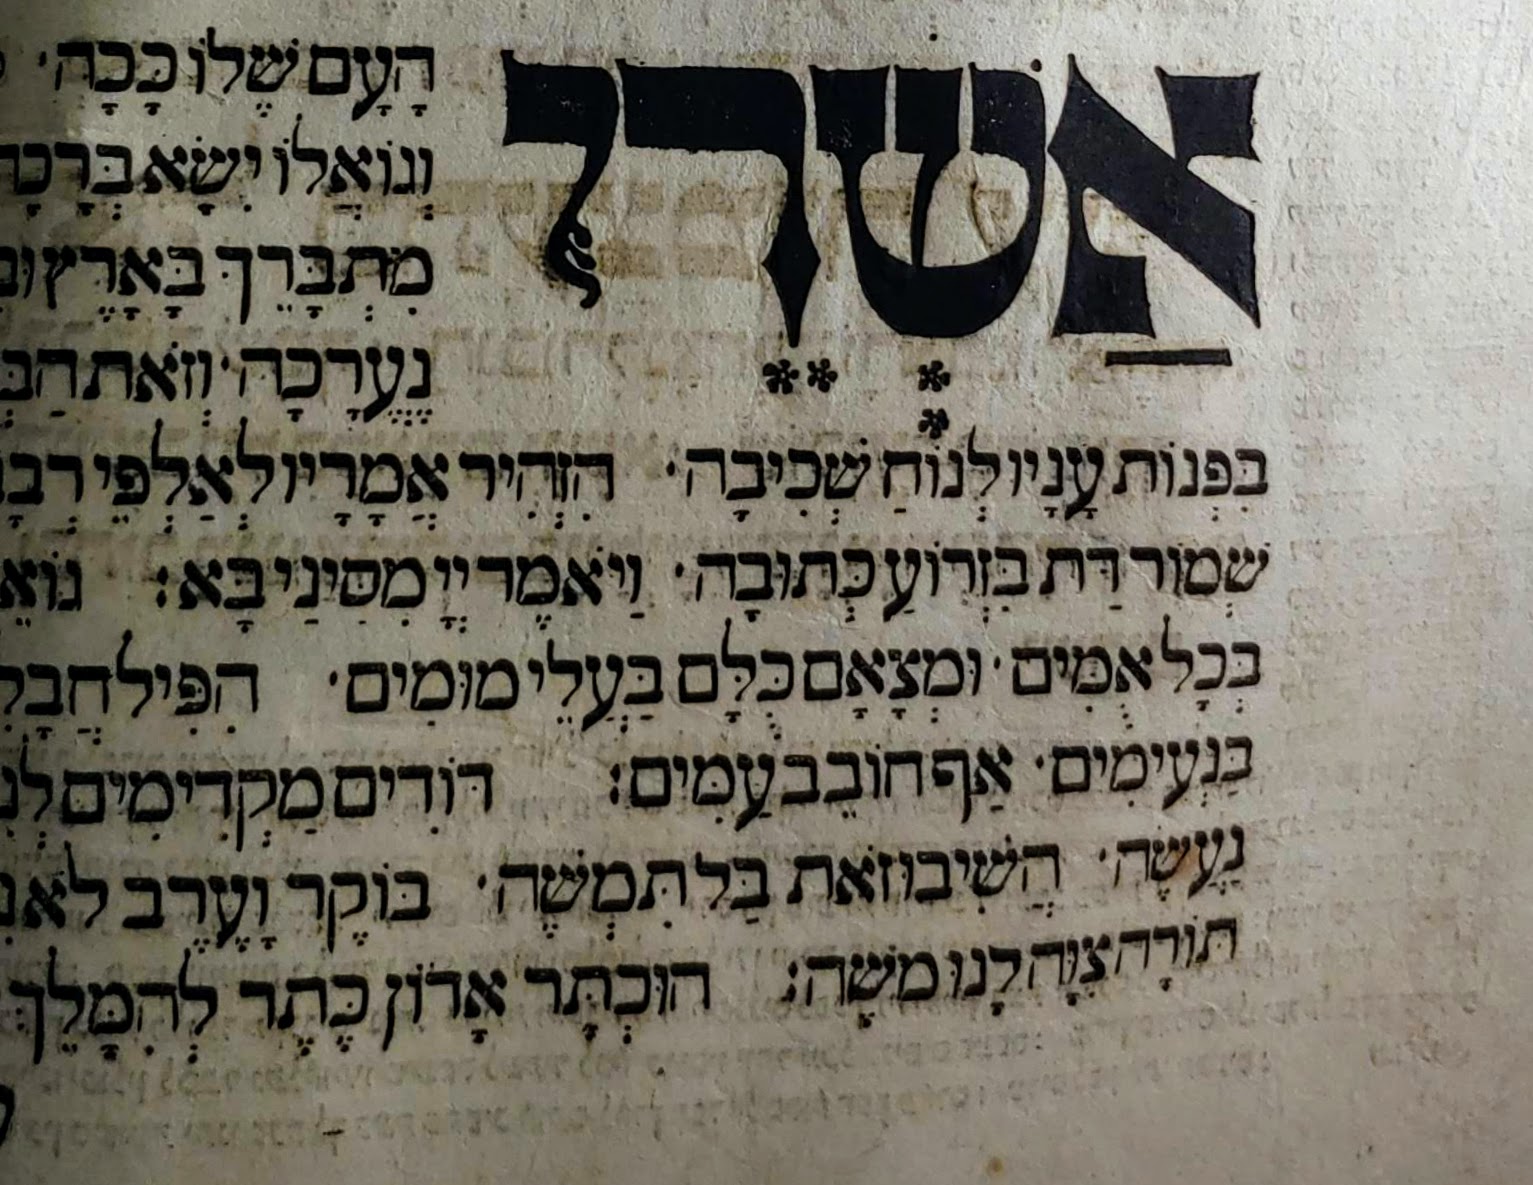 אַשְׁרֵי
הָעָם שֶׁלוֹ כָּכָה·
וְגוֹאֲלוֹ יִשָׂא בְּרָכָה
מִתְבָּרֵךְ בָּאָרֶץ
נֶעֱרָכָה· וְזֹאת
בִּפְנוֹת עָנָיו לְנוֹחַ שְׁכִיבָה· הִזְהִיר אֲמָרָיו לְאַלְפֵי
שְׁמוֹר דַּת בִּזְרוֹעַ כְּתוּבָה· וַיֹּאמֶר יְיָ מִסִּינַי בָּא:
בְּכָל אֻמִּים· וּמְצָאָם כֻּלָּם בַּעֲלֵי מוּמִים· הִפִּיל
בַּנְּעִימִים· אַף חוֹבֵב עַמִּים: דּוֹדִים מַקְדִּימִים
נַעֲשֶׂה· הֲשִׁיבוּ זֹאת בַּל תִּמְשֶׁה· בּוֹקֶר וָעֶרֶב
תּוֹרָה צִוָּה לָנוּ מֹשֶׁה: הוּכְתָּר אָדוֹן כֶּתֶר לְהִמָּלֵךְ